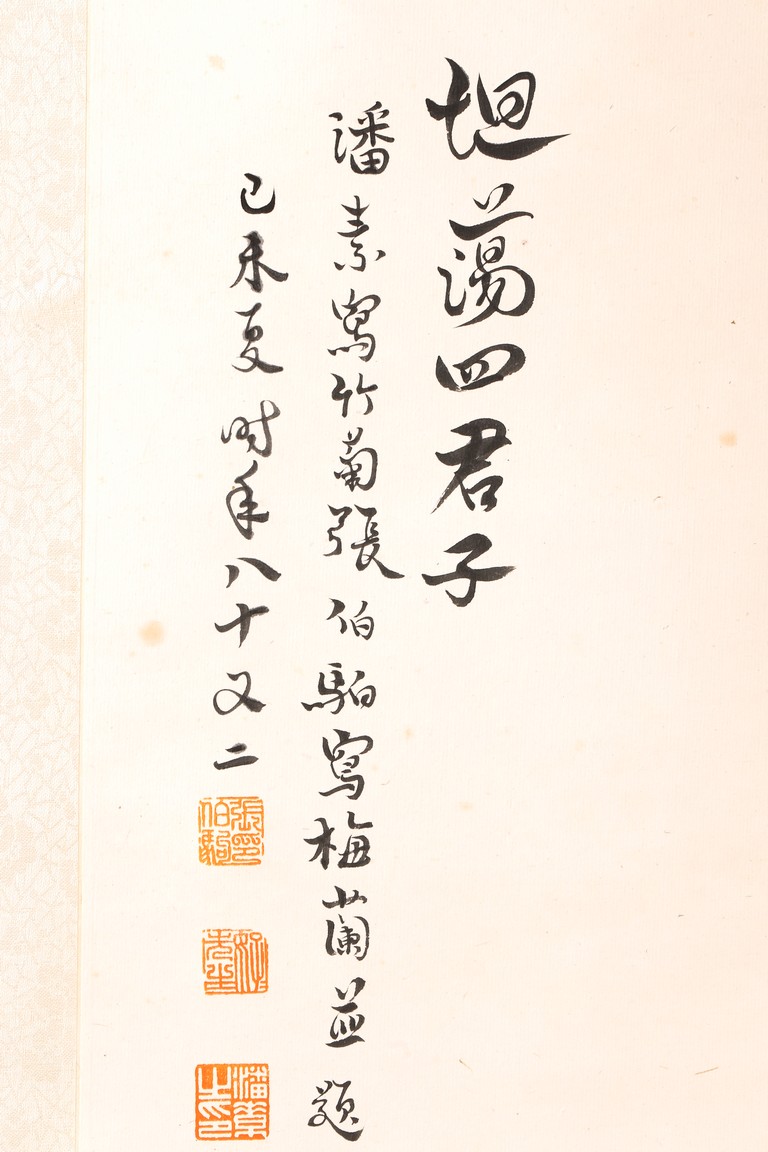 坦蕩四君子
潘素寫竹菊張伯駒寫梅蘭並題
己未夏時年八十又二
張伯駒印
好好先生
潘素之印